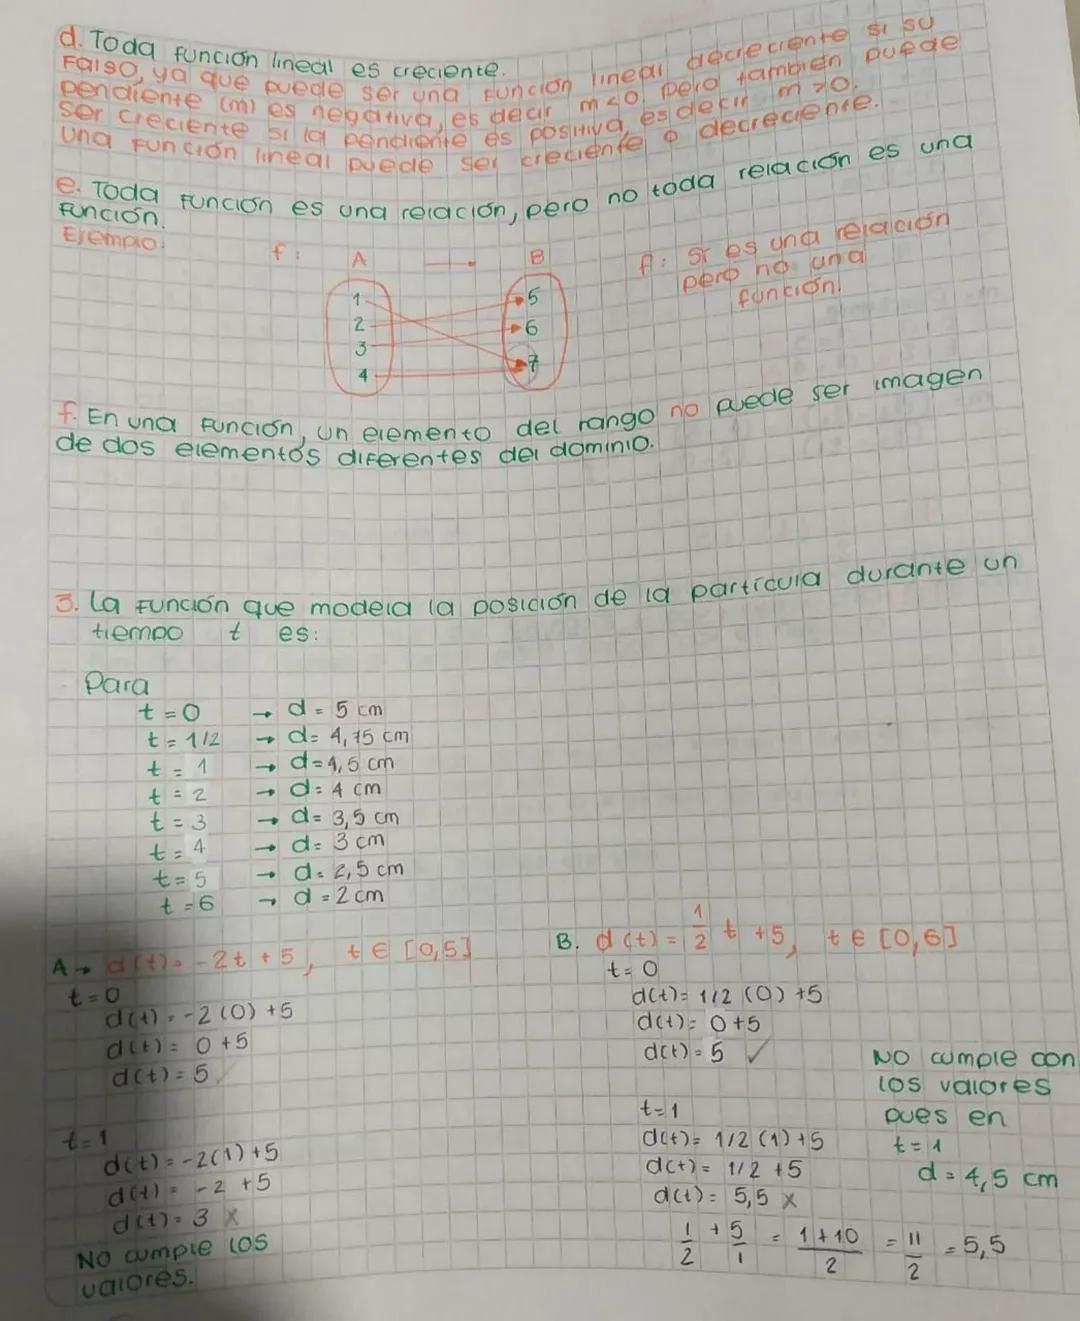 d. Toda función lineal es creciente.
Falso, ya que puede ser una función lineal decreciente si su
pendiente (m) es negativa, es decir m<0, pero también puede
ser creciente si la pendiente es positiva, es decir m>0.
una función lineal puede ser creciente o decreciente.
e. Toda función es una relación, pero no toda relación es una
función.
Ejemplo:
f: A → B
1 5
2 6
3 7
4
f: Si es una relación
pero no una
función!
f. En una función, un elemento del rango no puede ser imagen
de dos elementos diferentes del dominio.
3. La función que modela la posición de la partícula durante un
tiempo t es:
- Para
t = 0 → d = 5 cm
t = 1/2 → d = 4,75 cm
t = 1 → d = 4,5 cm
t = 2 → d = 4 cm
t = 3 → d = 3,5 cm
t = 4 → d = 3 cm
t = 5 → d = 2,5 cm
t = 6 → d = 2 cm
A → d(t) = -2t + 5, t ∈ [0,5]
t = 0
d(t) = -2(0) + 5
d(t) = 0 + 5
d(t) = 5 ✓
t = 1
d(t) = -2(1) + 5
d(t) = -2 + 5
d(t) = 3 x
No cumple los
valores.
B. d(t) = 1/2 t + 5, t ∈ [0,6]
t = 0
d(t) = 1/2 (0) + 5
d(t) = 0 + 5
d(t) = 5 ✓
t = 1
d(t) = 1/2 (1) + 5
d(t) = 1/2 + 5
d(t) = 5,5 x
1/2 + 5/1 = 1+10/2 = 11/2 = 5,5
No cumple con
los valores
pues en
t = 1
d = 4,5 cm